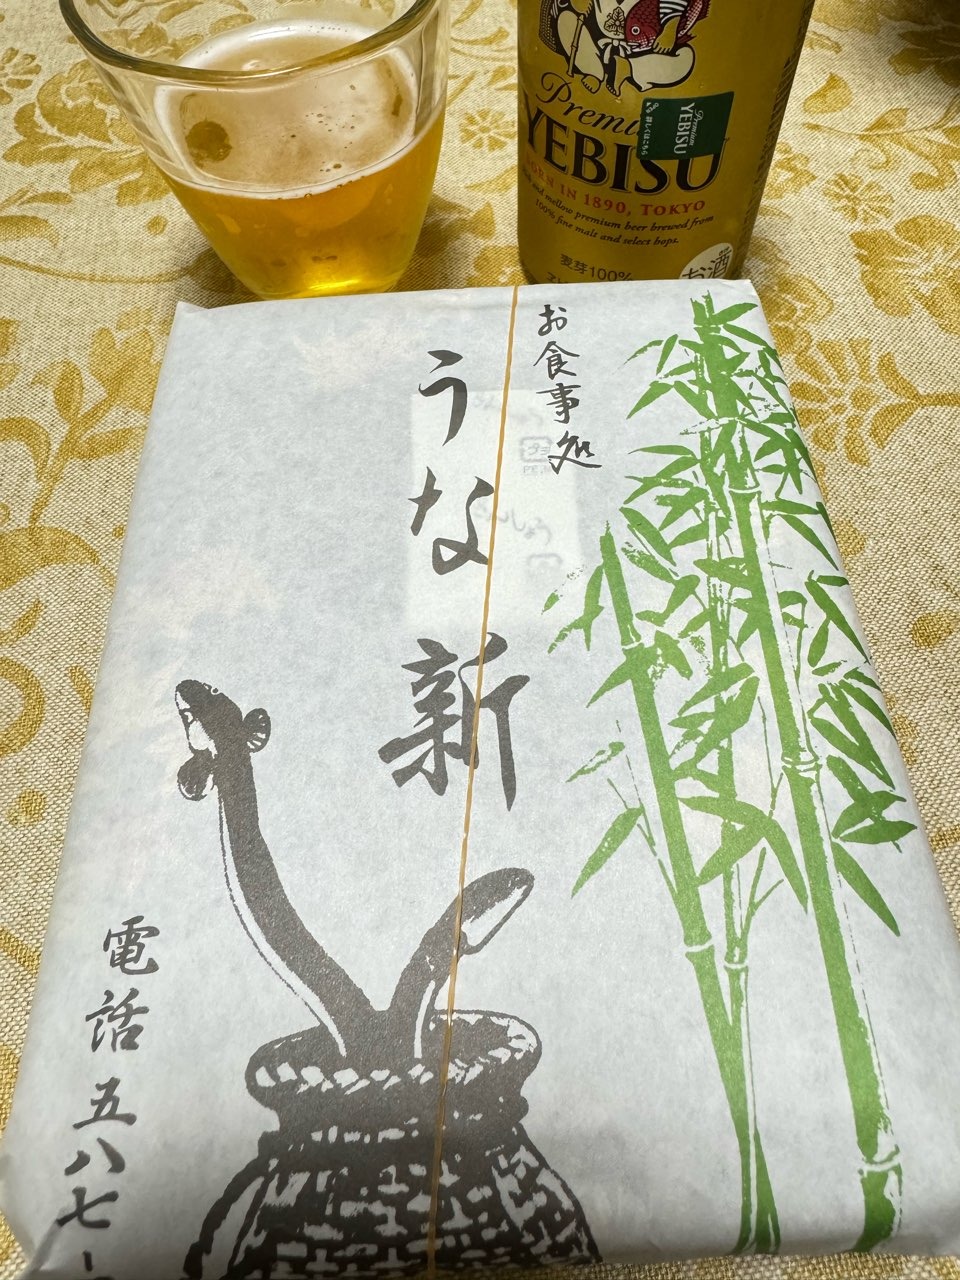 Premium
YEBISU
BORN IN 1890, TOKYO
and mellow premium beer brewed from
100% fine malts and select hops.
麦芽100%
お酒
Premium
YEBISU
お食事処
うな新
電話 五八七-